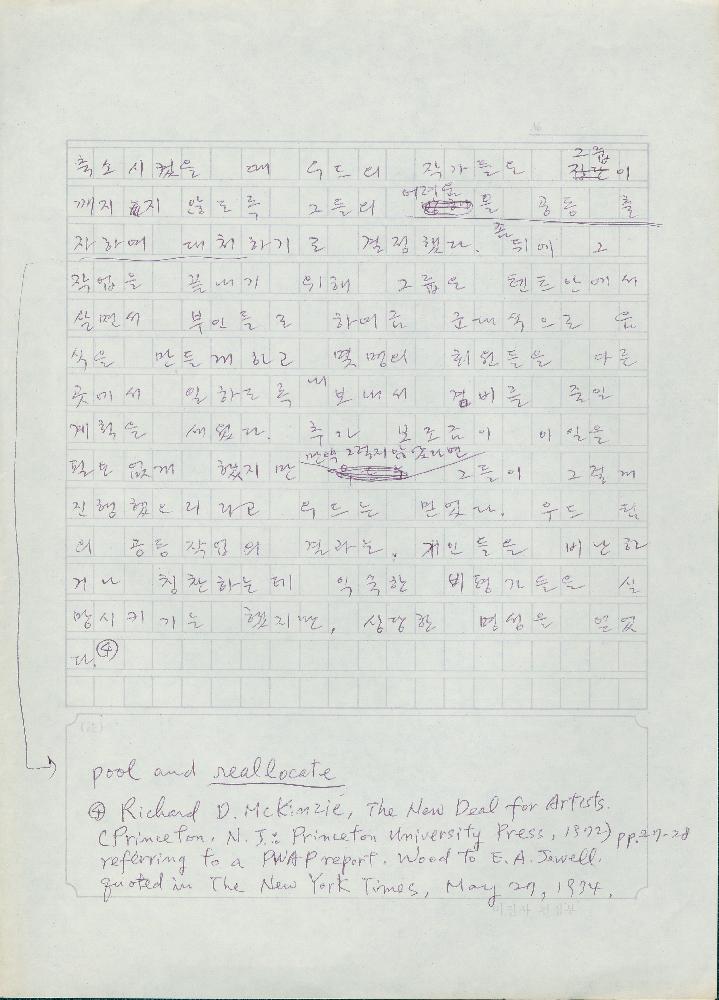 축소시켰을 때 우드의 작가들은 그룹이
깨지지 않도록 그들의 어려움을 공동 출
자하여 대처하기로 결정했다. 존 뒤에 그
작업을 끝내기 위해 그룹은 텐트안에서
살면서 부인들로 하여금 군대식으로 음
식을 만들게 하고 몇명의 회원들을 다른
곳에서 일하도록 내보내서 경비를 줄일
계획을 세웠다. 추가 보조금이 이 일을
필요없게 했지만 만약 그렇지 않았다면 그들이 그렇게
진행했으리라고 우드는 믿었다. 우드 팀
의 공동작업의 결과는, 개인들을 비난하
거나 칭찬하는데 익숙한 비평가들을 실
망시키기는 했지만, 상당한 명성을 얻었
다.④
pool and reallocate
④ Richard D. McKinzie, The New Deal for Artists.
(Princeton, N.J.: Princeton University Press, 1972) pp.27-28
referring to a PWAP report. Wood to E.A. Jewell.
quoted in The New York Times, May 27, 1934.